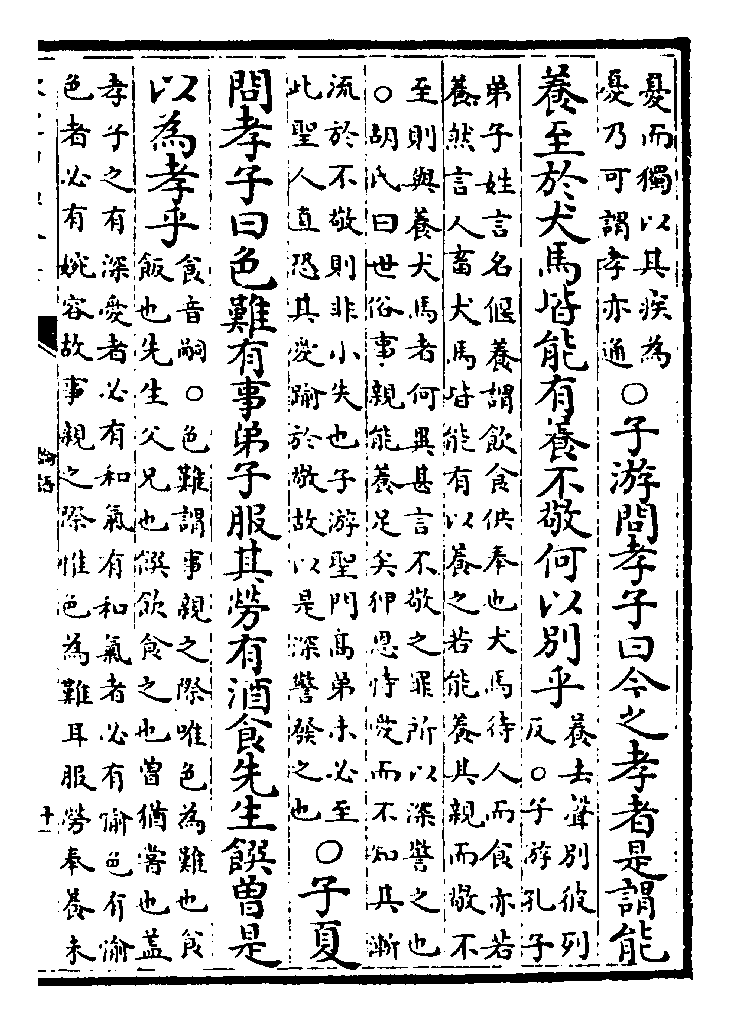 憂而獨以其疾為
憂乃可謂孝亦通
○子游問孝子曰今之孝者是謂能
養至於犬馬皆能有養不敬何以別乎
養去聲別彼列
反○子游孔子
弟子姓言名偃養謂飲食供奉也犬馬待人而食亦若
養然言人畜犬馬皆能有以養之若能養其親而敬不
至則與養犬馬者何異甚言不敬之罪所以深警之也
○胡氏曰世俗事親能養足矣狎恩恃愛而不知其漸
流於不敬則非小失也子游聖門高弟未必至
此聖人直恐其愛踰於敬故以是深警發之也
○子夏
問孝子曰色難有事弟子服其勞有酒食先生饌曾是
以為孝乎
食音嗣○色難謂事親之際唯色為難也食
飯也先生父兄也饌飲食之也曾猶嘗也蓋
孝子之有深愛者必有和氣有和氣者必有愉色有愉
色者必有婉容故事親之際惟色為難耳服勞奉養未
論語
十一